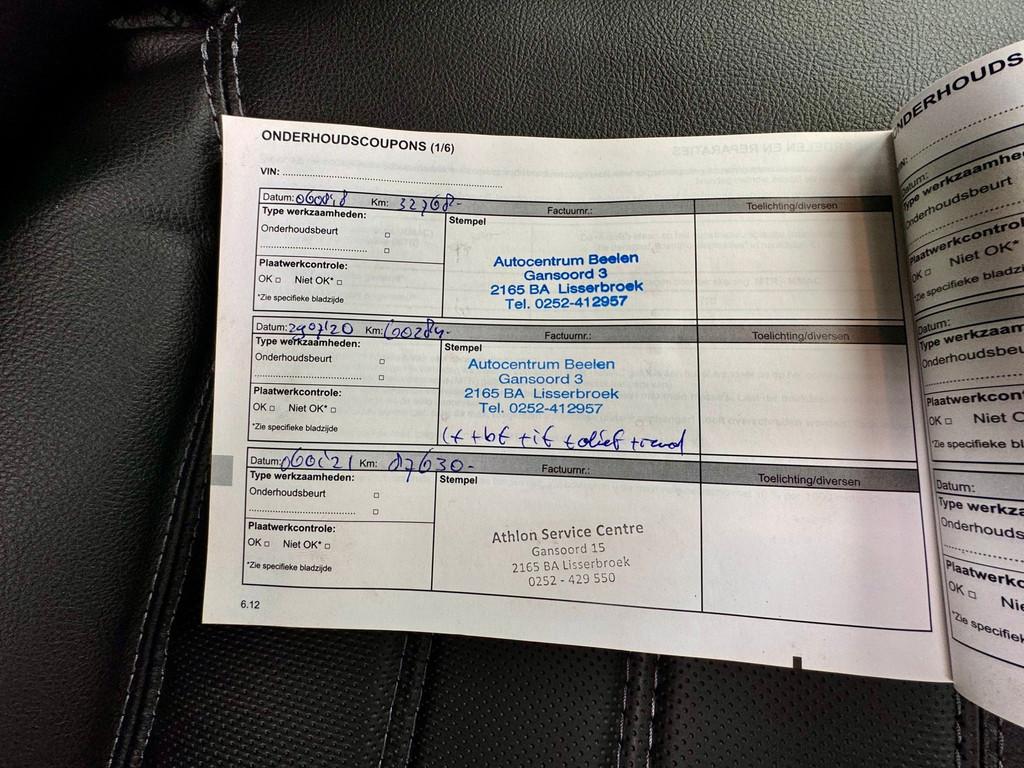 ONDERHOUDSCOUPONS (1/6)
VIN:
Datum: Km: 32768- Factuurnr.: Toelichting/diversen
Type werkzaamheden: Stempel
Onderhoudsbeurt □
□
Plaatwerkcontrole:
OK □ Niet OK* □
*Zie specifieke bladzijde
Autocentrum Beelen
Gansoord 3
2165 BA Lisserbroek
Tel. 0252-412957
Datum: 290720 Km: 60284- Factuurnr.: Toelichting/diversen
Type werkzaamheden: Stempel
Onderhoudsbeurt □
□
Plaatwerkcontrole:
OK □ Niet OK* □
*Zie specifieke bladzijde
Autocentrum Beelen
Gansoord 3
2165 BA Lisserbroek
Tel. 0252-412957
Datum: Km: 87630- Factuurnr.: Toelichting/diversen
Type werkzaamheden: Stempel
Onderhoudsbeurt □
□
Plaatwerkcontrole:
OK □ Niet OK* □
*Zie specifieke bladzijde
Athlon Service Centre
Gansoord 15
2165 BA Lisserbroek
0252 - 429 550
6.12
Datum:
Type werkzaamhe
Onderhoudsbeurt
Plaatwerkcontrol
OK □ Niet OK*
*Zie specifieke bladzi
Datum:
Type werkzaam
Onderhoudsbeu
Plaatwerkcon
OK □ Niet O
*Zie specifieke bl
Datum:
Type werkz
Onderhouds
Plaatwerkc
OK □ Nie
*Zie specifiek